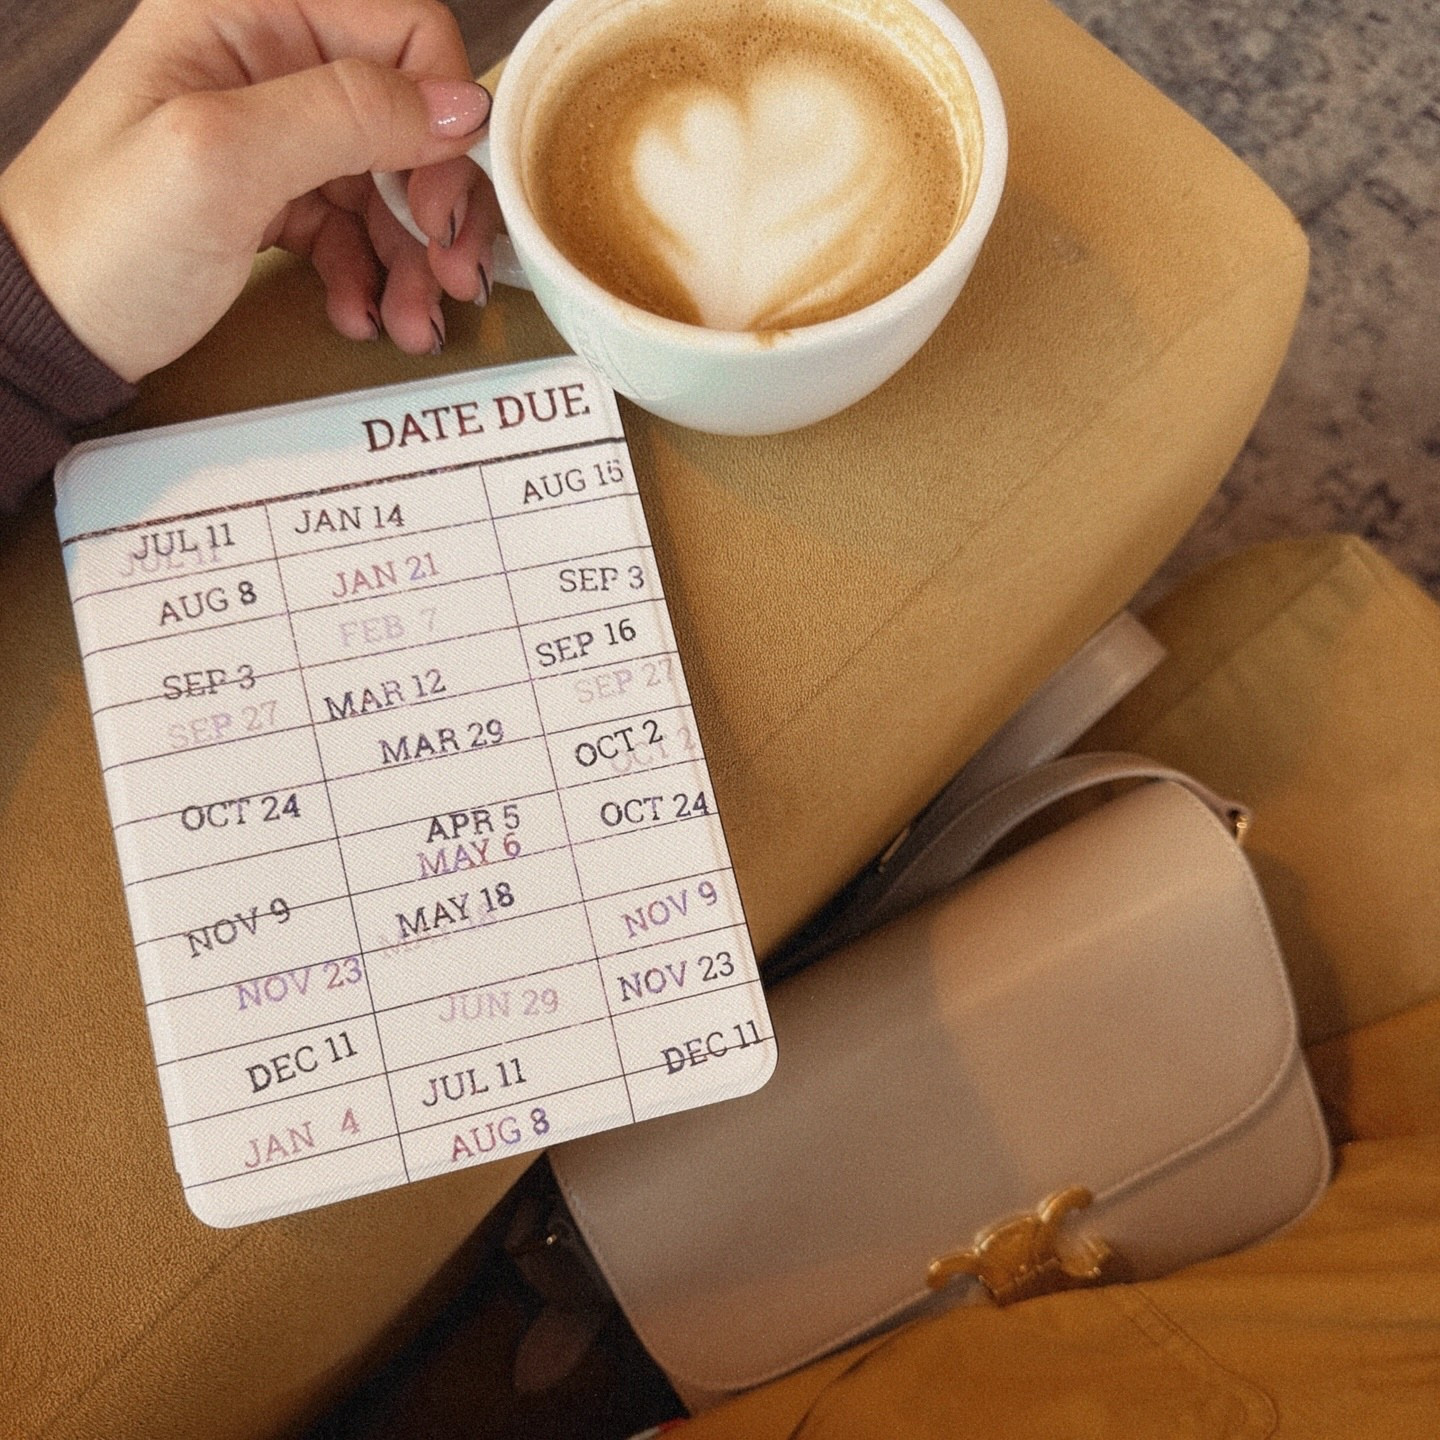 DATE DUE
JUL 11
JUL 11
AUG 8
SEP 3
SEP 27
OCT 24
NOV 9
NOV 23
DEC 11
JAN 4
JAN 14
JAN 21
FEB 7
MAR 12
MAR 29
APR 5
MAY 6
MAY 18
JUN 29
JUL 11
AUG 8
AUG 15
SEP 3
SEP 16
SEP 27
OCT 2
OCT 2
OCT 24
NOV 9
NOV 23
DEC 11